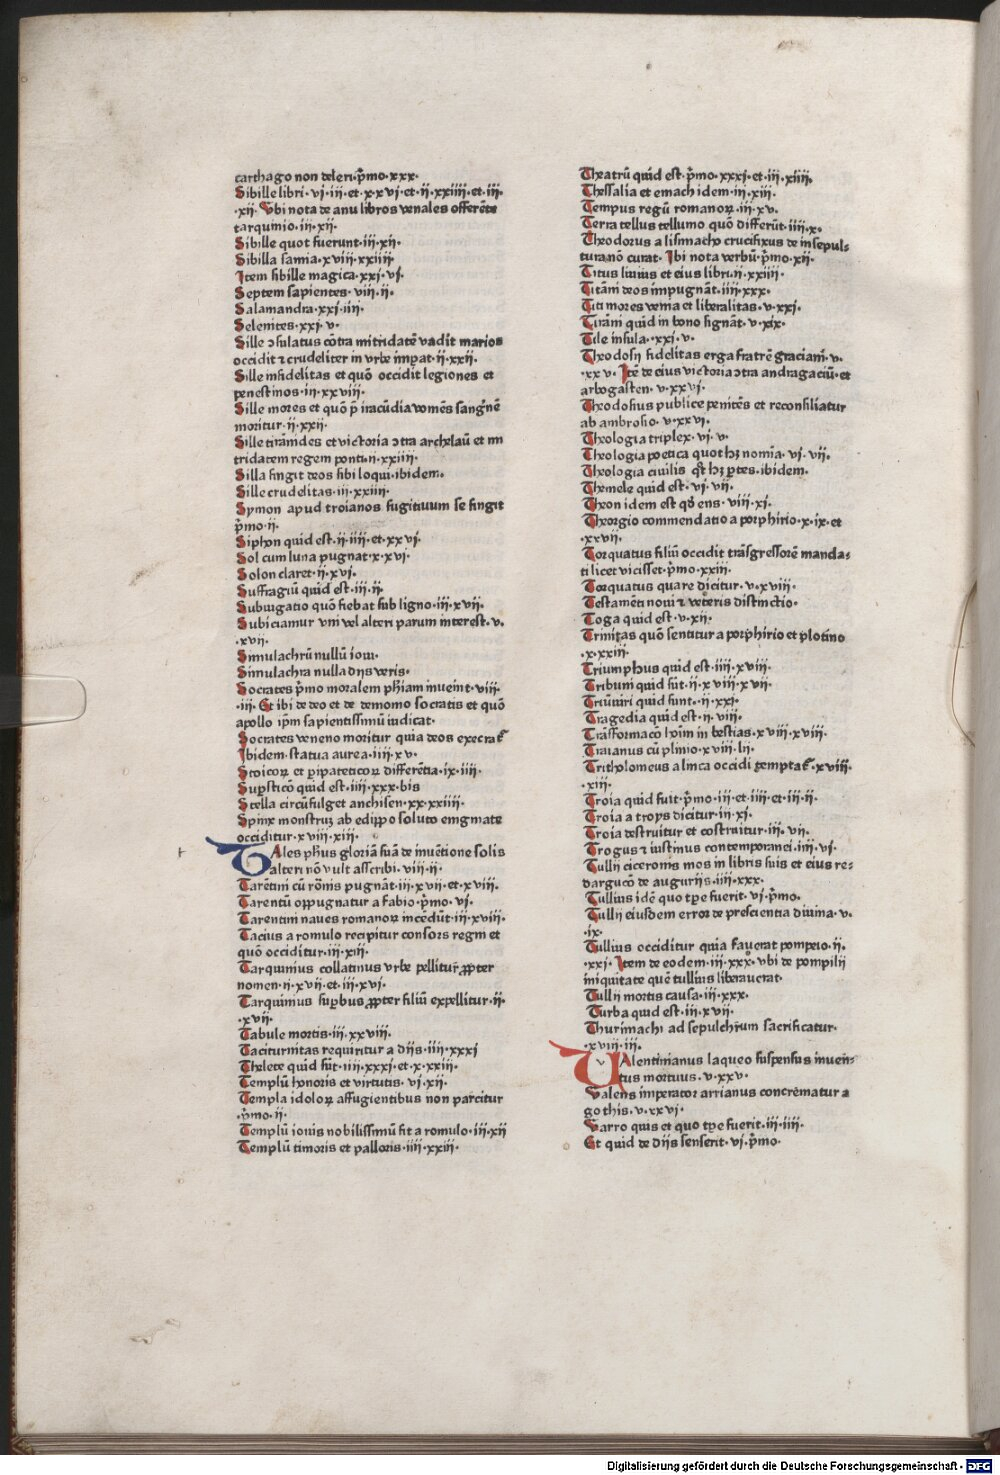 carthago non deleri·p̄mo·xxx·
Sibille libri·vj·iii·et·x·xvj·et·ii·xxiiii·et·iii·
·xij· Vbi nota de anu libros venales offerēte
tarquinio·iii·xij·
Sibille quot fuerunt·iii·xij·
Sibilla samia·xviii·xxiiii·
Item sibille magica·xxj·vj·
Septem sapientes·viii·ij·
Salamandra·xxj·iiii·
Selenites·xxj·v·
Sille ɔsulatus cōtra mitridatē vadit marios
occidit ⁊ crudeliter in vrbe impat·ij·xxij·
Sille infidelitas et quō occidit legiones et
penestinos·iii·xxviii·
Sille mores et quō p̄ iracūdia vomēs sangnē
moritur·ij·xxij·
Sille tirānides et victoria ɔtra archelaū et mi
tridatem regem ponti·ii·xxiiii·
Silla fingit deos sibi loqui·ibidem·
Sille crudelitas·iii·xxiiii·
Symon apud troianos fugitiuum se fingit
p̄mo·ij·
Siphon quid est·ij·iiii·et·xxvj·
Sol cum luna pugnat·x·xvj·
Solon claret·ij·xvj·
Suffragiū quid est·iii·ij·
Subiugatio quō fiebat sub ligno·iii·xvij·
Subiciamur vni vel alteri parum interest·v·
·xvij·
Simulachrū nullū ioui·
Simulachra nulla diis veris·
Socrates p̄mo moralem ph̄iam inuenit·viii·
·iii· Et ibi de deo et de demonio socratis et quō
apollo ip̄m sapientissimū iudicat·
Socrates veneno moritur quia deos execrat̄
Ibidem·statua aurea·iiii·xv·
Stoicoꝝ et pipateticoꝝ differētia·ix·iiii·
Supsticō quid est·iiii·xxx·bis
Stella circūfulget anchisen·xx·xxiiii·
Spinx monstruꝫ ab edippo soluto enigmate
occiditur·xviii·xiii·
TAles ph̄us gloriā suā de inuētione solis
alteri nō vult asscribi·viii·ij·
Tarētini cū rōnis pugnāt·iii·xvij·et·xviii·
Tarentū oppugnatur a fabio·p̄mo·vj·
Tarentini naues romanoꝝ incēdūt·iii·xviii·
Tacius a romulo recipitur consors regni et
quō occiditur·iii·xiii·
Tarquinius collatinus vrbe pellitur ꝓpter
nomen·ii·xvij·et·iii·xvj·
Tarquinius supbus ꝓpter filiū expellitur·ij·
·xvij·
Tabule mortis·iii·xxviii·
Taciturnitas requiritur a diis·iiii·xxxj
Thelete quid sūt·iiii·xxxj·et·x·xxiii·
Templū honoris et virtutis·vj·xij·
Templa idoloꝝ affugientibus non parcitur
·p̄mo·ij·
Templū iouis nobilissimū fit a romulo·iii·xij
Templū timoris et palloris·iiii·xxiii·
Theatrū quid est·p̄mo·xxxj·et·iii·xiiii·
Thessalia et emach idem·iii·xiii·
Tempus regū romanoꝝ·iii·xv·
Terra tellus tellumo quō differūt·iiii·x·
Theodorus a lisimacho crucifixus de insepul-
tura nō curat· Ibi nota verbū·p̄mo·xij·
Titus liuius et eius libri·ii·xxiiii·
Titāni deos impugnāt·iiii·xxx·
Titi mores venia et liberalitas·v·xxj·
Tirāni quid in bono signāt·v·xix·
Tile insula·xxj·v·
Theodosij fidelitas erga fratrē graciani·v·
·xxv· Itē de eius victoria ɔtra andragaciū·et
arbogasten·v·xxvj·
Theodosius publice penitēs et reconsiliatur
ab ambrosio·v·xxvj·
Theologia triplex·vj·v·
Theologia poetica quot hꝫ nomīa·vj·vij·
Theologia ciuilis qt hꝫ ptes·ibidem·
Themele quid est·vj·vij·
Theon idem est qd ens·viii·xj·
Theorgio commendatio a porphirio·x·ix·et
·xxvij·
Torquatus filiū occidit trāsgressorē manda-
ti licet vicisset·p̄mo·xxiii·
Torquatus quare dicitur·v·xviii·
Testamēti noui ⁊ veteris distinctio·
Toga quid est·v·xij·
Trinitas quō sentitur a porphirio et plotino
·x·xxiii·
Triumphus quid est·iiii·xviii·
Tribuni quid sūt·ij·xviii·xvij·
Triūuiri quid sunt·ij·xxj·
Tragedia quid est·ij·viii·
Trāsformacō hoīm in bestias·xviii·xviii·
Traianus cū plinio·xviii·lij·
Tritholomeus a linca occidi temptat̄·xviii·
·xiii·
Troia quid fuit·p̄mo·iii·et·iiii·et·iii·ij·
Troia a troys dicitur·iii·xj·
Troia destruitur et costruitur·iii·vij·
Trogus ⁊ iustinus contemporanei·iiii·vj·
Tullij ciceronis mos in libris suis et eius re-
dargucō de auguriis·iiii·xxx·
Tullius idē quo tp̄e fuerit·vj·p̄mo·
Tullij eiusdem error de prescientia diuina·v·
·ix·
Tullius occiditur quia fauerat pompeio·ij·
·xxj· Item de eodem·iii·xxx·vbi de pompilij
iniquitate quē tullius liberauerat·
Tullij mortis causa·iii·xxx·
Turba quid est·iii·xvij·
Thurimachi ad sepulchrum sacrificatur·
·xviii·iii·
VAlentinianus laqueo suspensus inuen-
tus mortuus·v·xxv·
Valens imperator arrianus concrematur a
gothis·v·xxvj·
Varro quis et quo tp̄e fuerit·iii·iiii·
Et quid de diis senserit·vj·p̄mo·
Digitalisierung gefördert durch die Deutsche Forschungsgemeinschaft · DFG